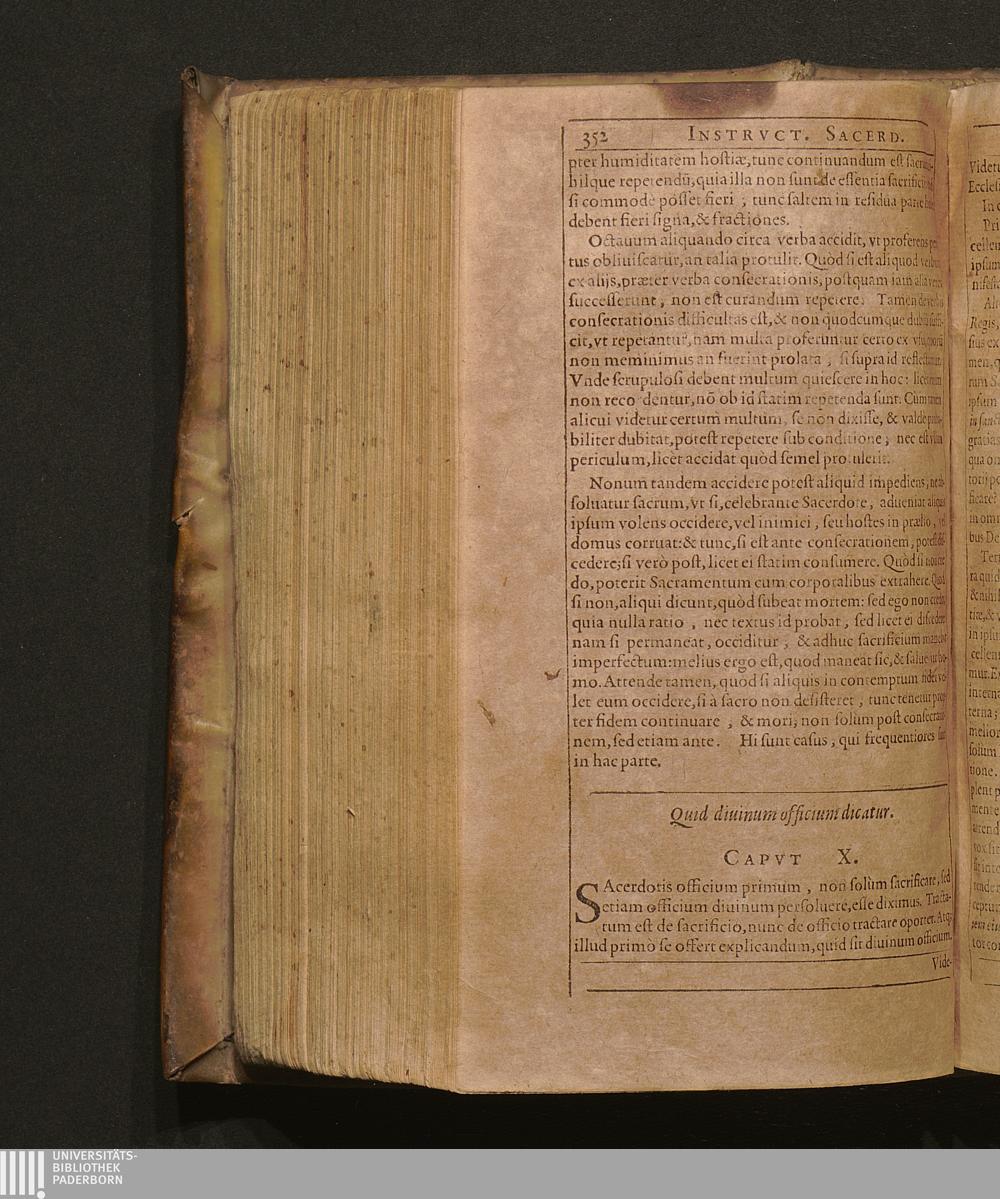 352 INSTRVCT. SACERD.
pter humiditatem hostiæ, tunc continuandum est
hilque repetendū, quia illa non sunt de essentia sacrificij
si commodè posset fieri ; tunc saltem in residua parte
debent fieri signa, & fractiones.
Octauum aliquando circa verba accidit, vt proferens
tus obliuiscatur, an talia protulit. Quòd si est aliquod
ex alijs, præter verba consecrationis, postquam iam alia
successerunt, non est curandum repetere. Tamen de
consecrationis difficultas est, & non quodcumque
cit, vt repetantur, nam multa proferuntur certo ex vsu,
non meminimus an fuerint prolata , si supra id
Vnde scrupulosi debent multum quiescere in hoc:
non recordentur, nō ob id statim repetenda sunt. Cùm
alicui videtur certum multum, se non dixisse, & valde
biliter dubitat, potest repetere sub conditione ; nec est
periculum, licet accidat quòd semel protulerit.
Nonum tandem accidere potest aliquid impediens,
soluatur sacrum, vt si, celebrante Sacerdote, adueniat aliquis
ipsum volens occidere, vel inimici, seu hostes in prælio, vel
domus corruat: & tunc, si est ante consecrationem,
cedere; si verò post, licet ei statim consumere. Quòd si
do, poterit Sacramentum cum corporalibus extrahere. Quòd
si non, aliqui dicunt, quòd subeat mortem: sed ego non
quia nulla ratio , nec textus id probat, sed licet ei discedere
nam si permaneat, occiditur , & adhuc sacrificium
imperfectum: melius ergo est, quod maneat sic, &
mo. Attende tamen, quòd si aliquis in contemptum fidei vo-
let eum occidere, si à sacro non desisteret , tunc tenetur
ter fidem continuare , & mori, non solùm post
nem, sed etiam ante. Hi sunt casus, qui frequentiores
in hac parte.
Quid diuinum officium dicatur.
CAPVT X.
SAcerdotis officium primum , non solùm sacrificare, sed
etiam officium diuinum persoluere, esse diximus. Tracta-
tum est de sacrificio, nunc de officio tractare oportet. Atq;
illud primò se offert explicandum, quid sit diuinum officium.
Vide-
UNIVERSITÄTS-
BIBLIOTHEK
PADERBORN